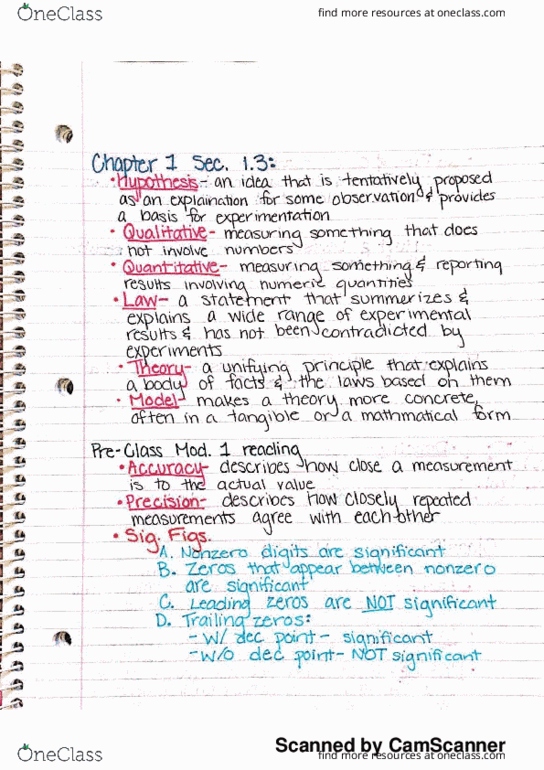 OneClass find more resources at oneclass.com
Chapter 1 Sec. 1.3:
• Hypothesis- an idea that is tentatively proposed
as an explaination for some observation & provides
a basis for experimentation
• Qualitative- measuring something that does
not involve numbers
• Quantitative- measuring something & reporting
results involving numeric quantities
• Law- a statement that summerizes &
explains a wide range of experimental
results & has not been contradicted by
experiments
• Theory- a unifying principle that explains
a body of facts & the laws based on them
• Model- makes a theory more concrete,
often in a tangible or a mathmatical form
Pre-Class Mod. 1 reading
• Accuracy- describes how close a measurement
is to the actual value
• Precision- describes how closely repeated
measurements agree with each other
• Sig. Figs.
A. Nonzero digits are significant
B. Zeros that appear between nonzero
are significant
C. Leading zeros are NOT significant
D. Trailing zeros:
- W/ dec point- significant
- W/o dec point- NOT significant
Scanned by CamScanner
OneClass find more resources at oneclass.com